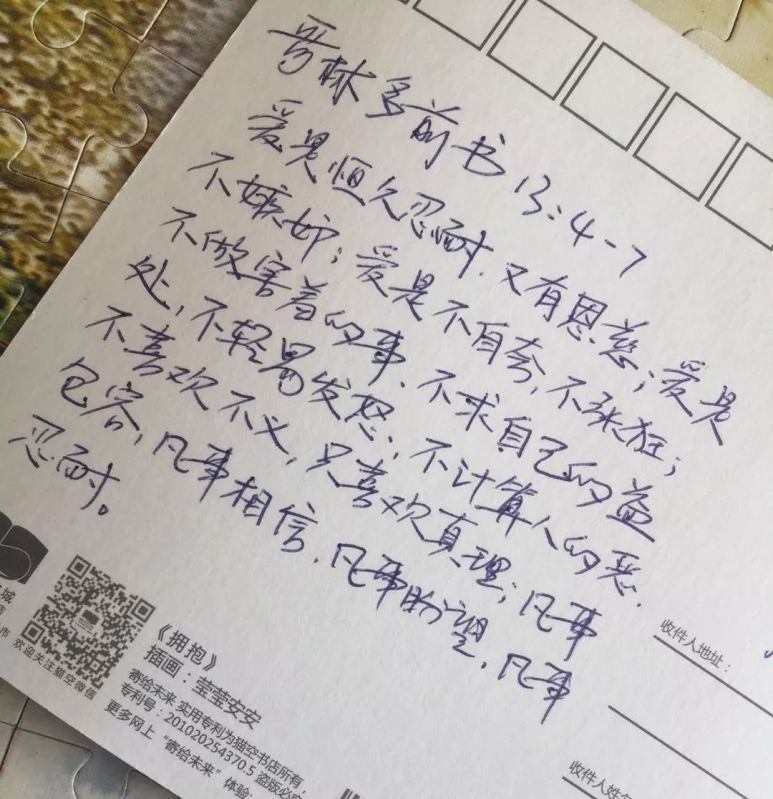 哥林多前书 13:4-7
爱是恒久忍耐,又有恩慈;爱是
不嫉妒;爱是不自夸,不张狂;
不做害羞的事,不求自己的益
处,不轻易发怒,不计算人的恶,
不喜欢不义,只喜欢真理;凡事
包容,凡事相信,凡事盼望,凡事
忍耐。
城
店
市
欢迎关注猫空微信
《拥抱》
插画:莹莹安安
寄给未来 实用专利为猫空书店所有,
专利号:201020254370.5 盗版必究
更多网上“寄给未来”体验
收件人地址:
收件人姓名